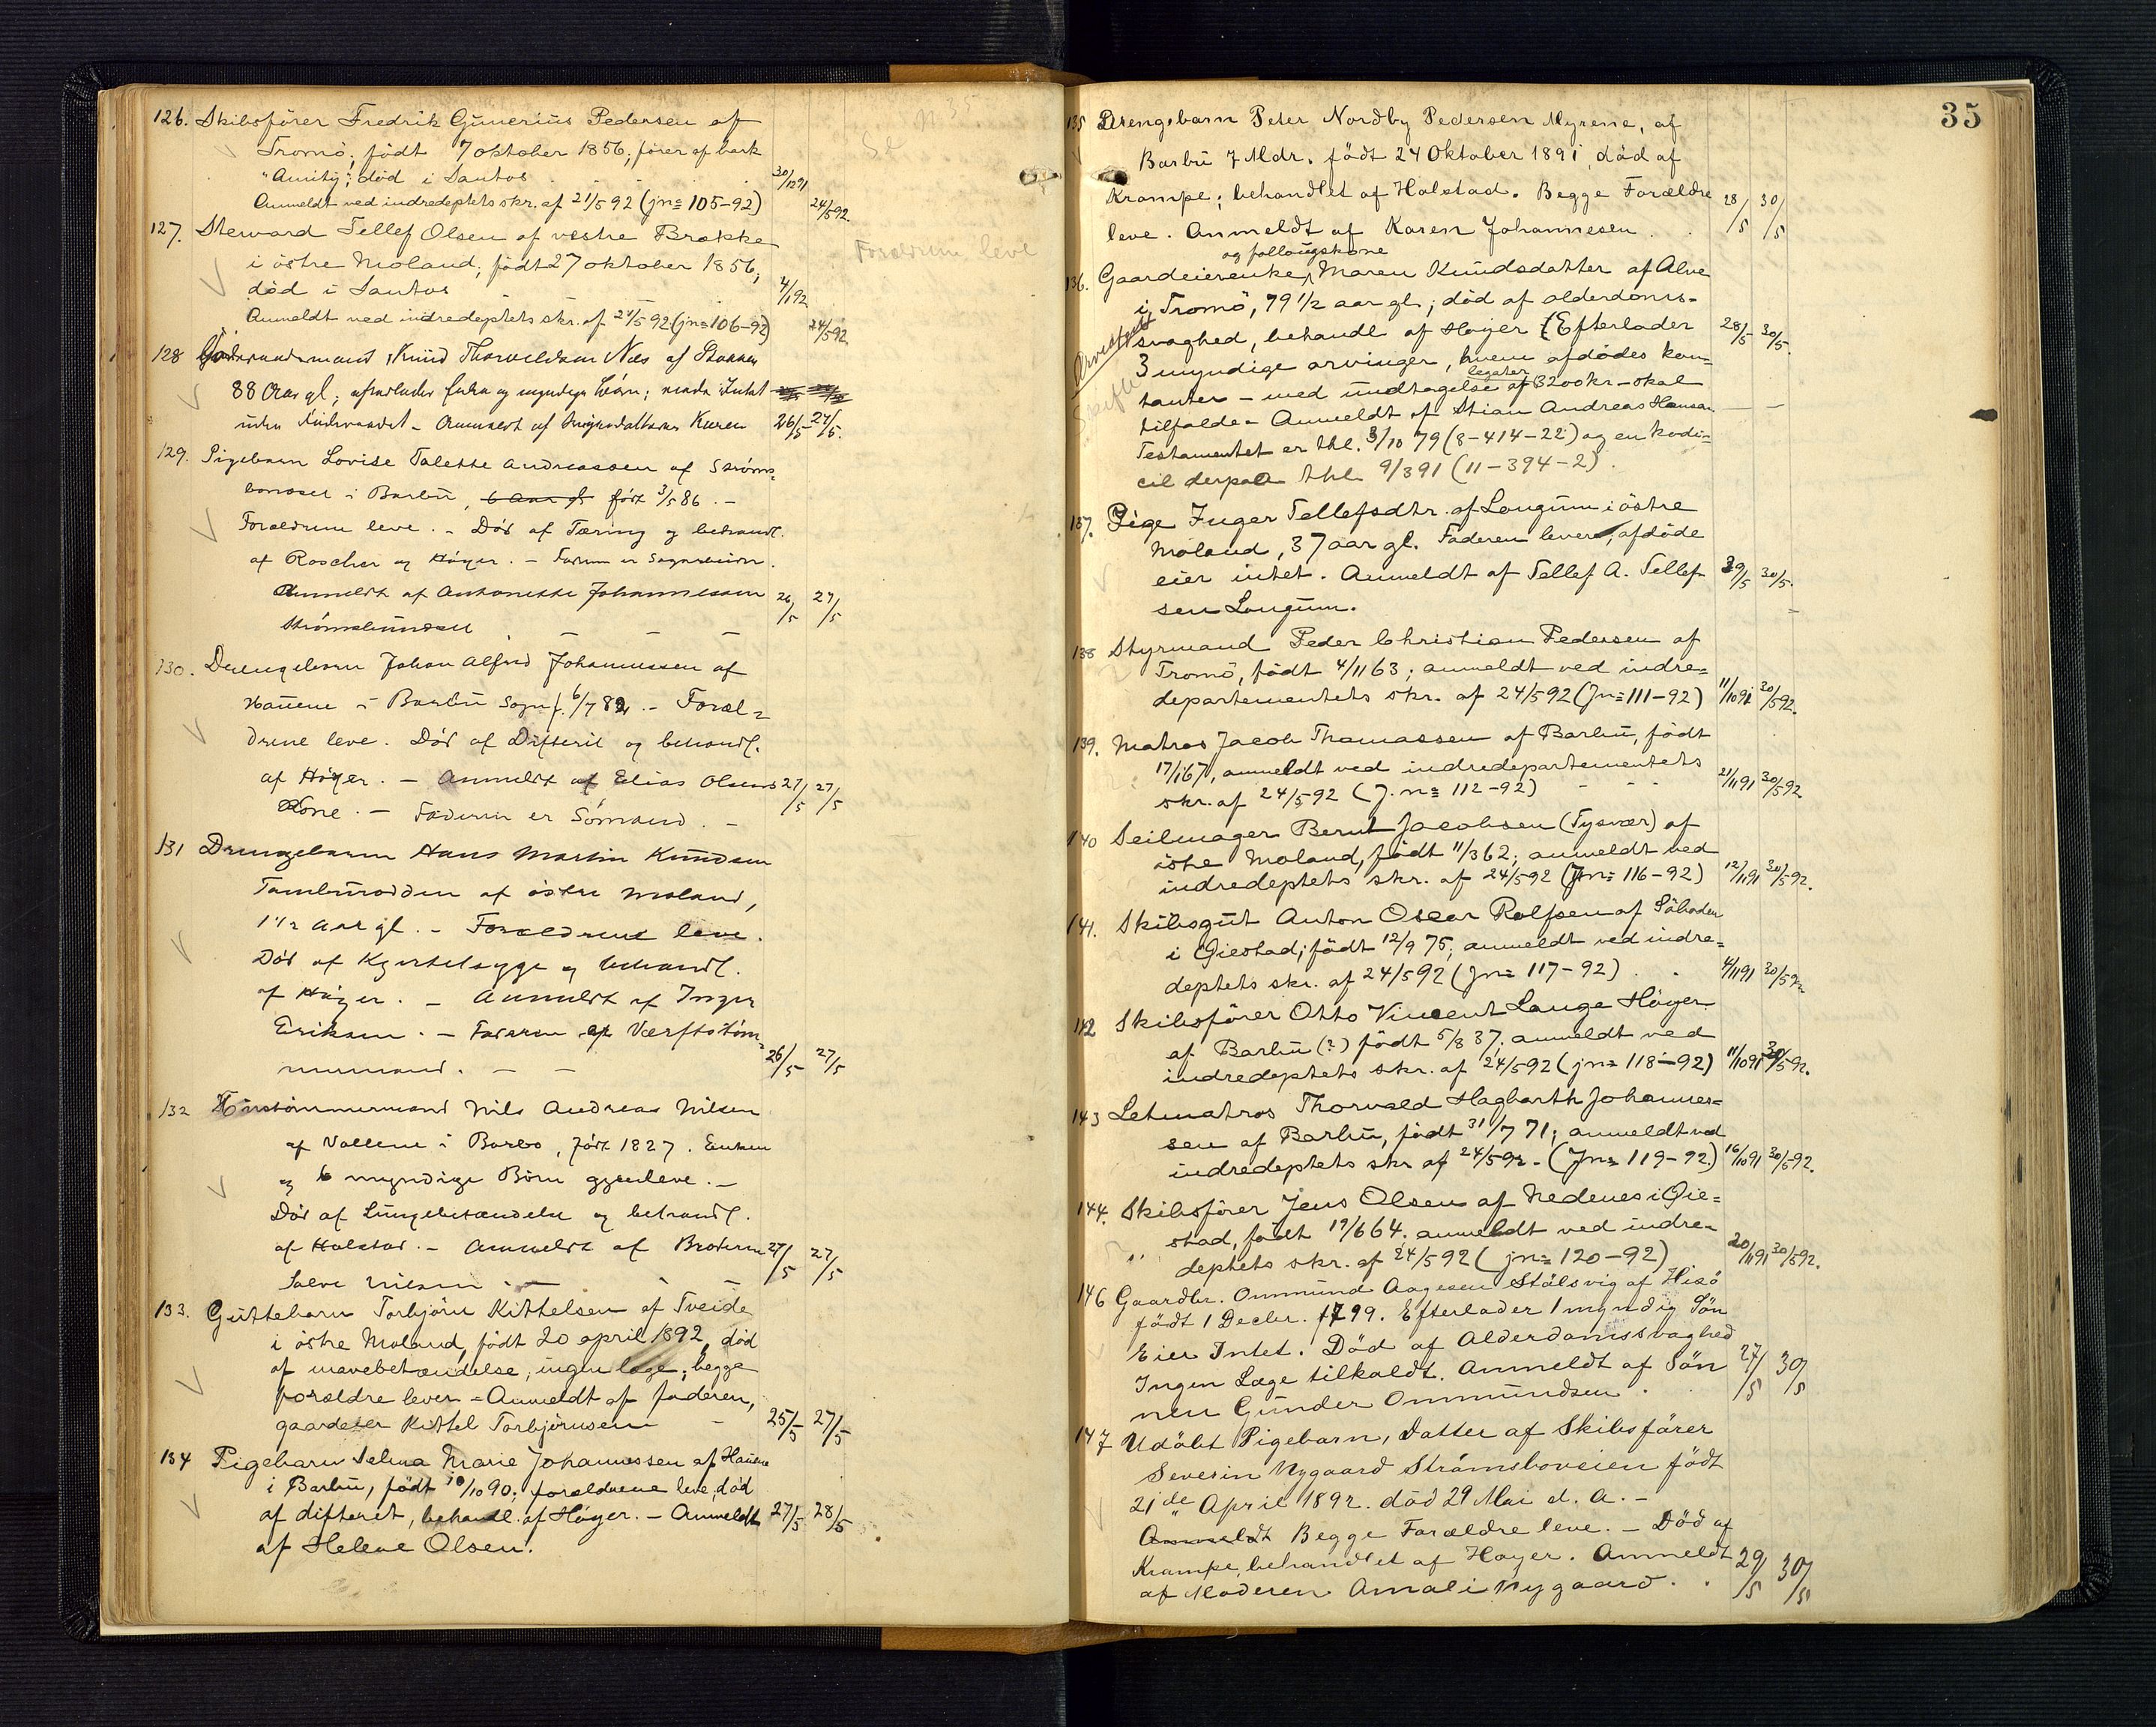 126. Skibsfører Fredrik Gunerius Pedersen af
Tromö, födt 7 oktober 1856, förer af bark
"Amity", död i Santos 30/12 91
Anmeldt ved indredeptets skr. af 21/5 92 (jn= 105-92) 24/5 92.
127. Steward Tellef Olsen af vestre Brække
i östre Moland, födt 27 oktober 1856,
död i Santos 4/1 92
Anmeldt ved indredeptets skr. af 21/5 92 (jn= 106-92) 24/5 92
128 Knud Thorvaldsen Næs af
88 Aar gl; efterlader Enke og myndige Börn;
uden - Anmeldt af Karen 26/5 27/5.
129. Pigebarn Lovise Talette Andreassen af Ströms=
i Barbu, 6 Aar gl födt 3/5 86. -
Forældrene leve. - Död af Tæring og behandl.
af Roscher og Höyer. - Faderen er
Anmeldt af Antonette Johannessen 26/5 27/5
130. Drengebarn Johan Alfred Johannessen af
Hauene i Barbu Sogn f. 6/7 82. - Foræl=
drene leve. Död af Difterit og behandl.
af Höyer. - Anmeldt af Elias Olsens 27/5 27/5
Kone. - Faderen er Sömand. -
131 Drengebarn Hans Martin Knudsen
af östre Moland,
1 1/2 Aar gl. - Forældrene leve.
Död af Kjertelsyge og behandl.
af Höyer. - Anmeldt af Inger
Eriksen. - Faderen er Værftstöm=
mermand. - - 26/5 27/5
132 Hustömmermand Nils Andreas Nilsen
af Vollene i Barbo, födt 1827. Enken
og 6 myndige Börn gjenleve. -
Död af Lungebetændelse og behandl.
af Holstad. - Anmeldt af Broderen 27/5 27/5
Salve Nilsen - -
133. Guttebarn Torbjörn Kittelsen af Tveide
i östre Moland, födt 20 april 1892, död
af mavebetændelse, ingen læge, begge
forældre lever - Anmeldt af faderen,
gaardeier Kittel Torbjörnsen - 25/5 27/5
134 Pigebarn Selma Marie Johannessen af Hauene
i Barbu, födt 10/10 90; forældrene leve, död
af difterit, behandl. af Höyer. - Anmeldt 27/5 28/5
af Helene Olsen.
Se N 35
Forældrene leve
35
135 Drengebarn Peter Nordby Pedersen Myrene, af
Barbu 7 Mdr. födt 24 Oktober 1891, död af
Krampe; behandlet af Holstad. Begge Forældre 28/5 30/5
leve. Anmeldt af Karen Johannesen . .
og follougskone
136. Gaardeierenke, Maren Knudsdatter af Alve
i Tromö, 79 1/2 aar gl.; död af alderdoms-
svaghed, behandl af Höyer (Efterlader 28/5 30/5.
3 myndige arvinger, hvem afdödes kon=
legater
tanter - med undtagelse af 3200 kr - skal
tilfalde - Anmeldt af Stian Andreas Hansen. - -
Testamentet er thl. 3/10 79 (8-414-22) og en kodi=
cil derpaa thl. 9/3 91 (11-394-2).
137. Pige Inger Tellefsdtr. af Longum i östre
Moland, 37 aar gl. Faderen lever, afdöde
eier intet. Anmeldt af Tellef A. Tellef- 29/5 30/5.
sen Longum.
138 Styrmand Peder Christian Pedersen af
Tromö, födt 4/11 63; anmeldt ved indre=
departementets skr. af 24/5 92 (Jn= 111-92) 11/10 91 30/5 92.
139. Matros Jacob Thomassen af Barbu, födt
17/1 67, anmeldt ved indredepartementets
skr. af 24/5 92 (J.n= 112-92) - - - 21/11 91 30/5 92.
140 Seilmager Bernt Jacobsen (Tysvær) af
östre Moland, födt 11/3 62; anmeldt ved
indredeptets skr. af 24/5 92 (Jn= 116-92) 12/11 91 30/5 92.
141. Skibsgut Anton Oscar Rolfsen af
i Öiestad; födt 12/9 75; anmeldt ved indre=
deptets skr. af 24/5 92 (Jn= 117-92) . . 4/11 91 30/5 92
142 Skibsförer Otto Vincent Lauge Höyer
af Barbu (?) födt 5/8 37; anmeldt ved
indredeptets skr. af 24/5 92 (jn= 118-92) 11/10 91 30/5 92.
143 Letmatros Thorvald Hagbarth Johannes=
sen af Barbu, födt 31/7 71; anmeldt ved
indredeptets skr af 24/5 92 - (Jn= 119-92) 16/10 91 30/5 92.
144. Skibsförer Jens Olsen af Nedenes i Öie=
stad, födt 19/6 64. anmeldt ved indre=
deptets skr. af 24/5 92 (jn= 120-92) 20/11 91 30/5 92.
146 Gaardbr. Ommund Aagesen Stölsvig af Hisö
födt 1 Decbr. 1799. Efterlader 1 myndig Sön
Eier Intet. Död af Alderdomssvaghed
Ingen Læge tilkaldt. Anmeldt af Sön 27/5 30/5
nen Gunder Ommundsen .
147 Udöbt Pigebarn, Datter af Skibsförer
Severin Nygaard Strömsboveien födt
21de April 1892. död 29 Mai d. A. -
Anmeldt Begge Forældre leve. - Död af
Krampe, behandlet af Höyer. Anmeldt 29/5 30/5
af Moderen Amali Nygaard. .